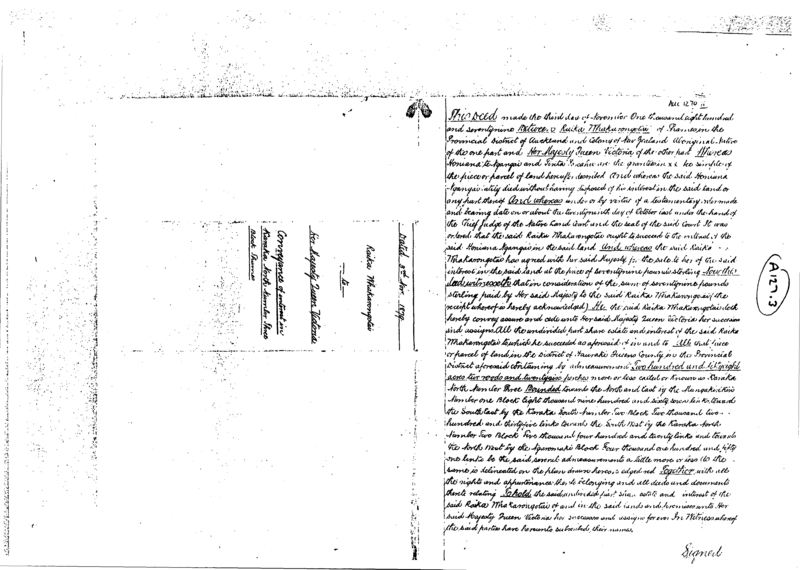 Dated 3rd Nov. 1879
Raika Whakarongotai
to
Her Majesty Queen Victoria
Conveyance of interest in
Karaka North Number Three
Block Thames
This Deed made the third day of November One thousand eight hundred
and seventynine Between Raika Whakarongotai of Thames in the
Provincial District of Auckland and Colony of New Zealand Aboriginal Native
of the one part and Her Majesty Queen Victoria of the other part Whereas
Honiana te Ngangai and are the grantees in fee simple of
the piece or parcel of land hereafter described And whereas the said Honiana
Ngangai lately died without having disposed of his interest in the said land or
any part thereof And whereas under or by virtue of a testamentary order made
and bearing date on or about the day of October last under the hand of
the Chief Judge of the Native Land Court and the seal of the said Court It was
ordered that the said Raika Whakarongotai ought to succeed to the interest of the
said Honiana Ngangai in the said land And whereas the said Raika
Whakarongotai has agreed with her said Majesty for the sale to her of the said
interest in the said land at the price of seventynine pounds sterling Now this
deed witnesseth that in consideration of the sum of seventynine pounds
sterling paid by Her said Majesty to the said Raika Whakarongotai (the
receipt whereof is hereby acknowledged) He the said Raika Whakarongotai doth
hereby convey assure and cede unto Her said Majesty Queen Victoria her successors
and assigns All the undivided part share estate and interest of the said Raika
Whakarongotai to which he succeeded as aforesaid of in and to All that piece
or parcel of land in the District of Hauraki Thames County in the Provincial
District aforesaid containing by admeasurement Two hundred and fiftyeight
acres two roods and perches more or less called or known as Karaka
North Number Three Bounded towards the North and East by the
Number one Block Eight thousand nine hundred and sixty seven links towards
the South East by the Karaka South Number Two Block Two thousand two
hundred and thirtyfive links towards the South West by the Karaka North
Number Two Block Five thousand four hundred and twenty links and towards
the North West by the Block Four thousand one hundred and fifty
one links be the said several admeasurements a little more or less As the
same is delineated on the plan drawn hereon edged red Together with all
the rights and appurtenances thereto belonging and all deeds and documents
thereto relating To hold the said undivided part share estate and interest of the
said Raika Whakarongotai of and in the said lands and premises unto Her
said Majesty Queen Victoria her successors and assigns for ever In Witness whereof
the said parties have hereunto subscribed their names.
Signed
A127.3